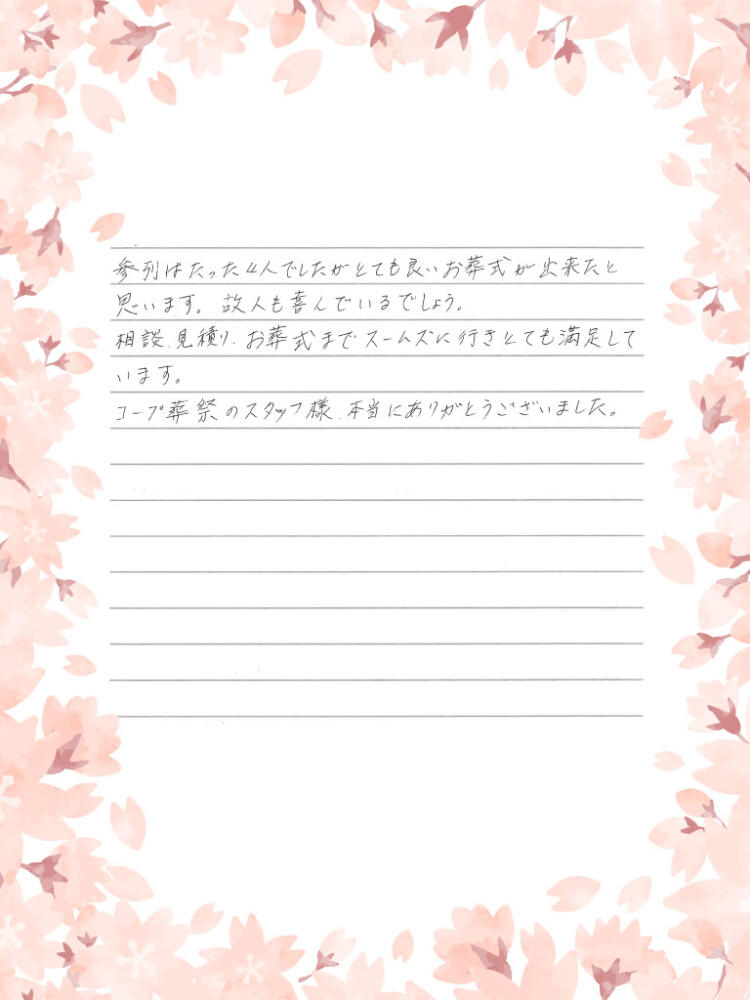 参列はたった4人でしたがとても良いお葬式が出来たと
思います。故人も喜んでいるでしょう。
相談、見積り、お葬式までスームズに行きとても満足して
います。
コープ葬祭のスタッフ様、本当にありがとうございました。